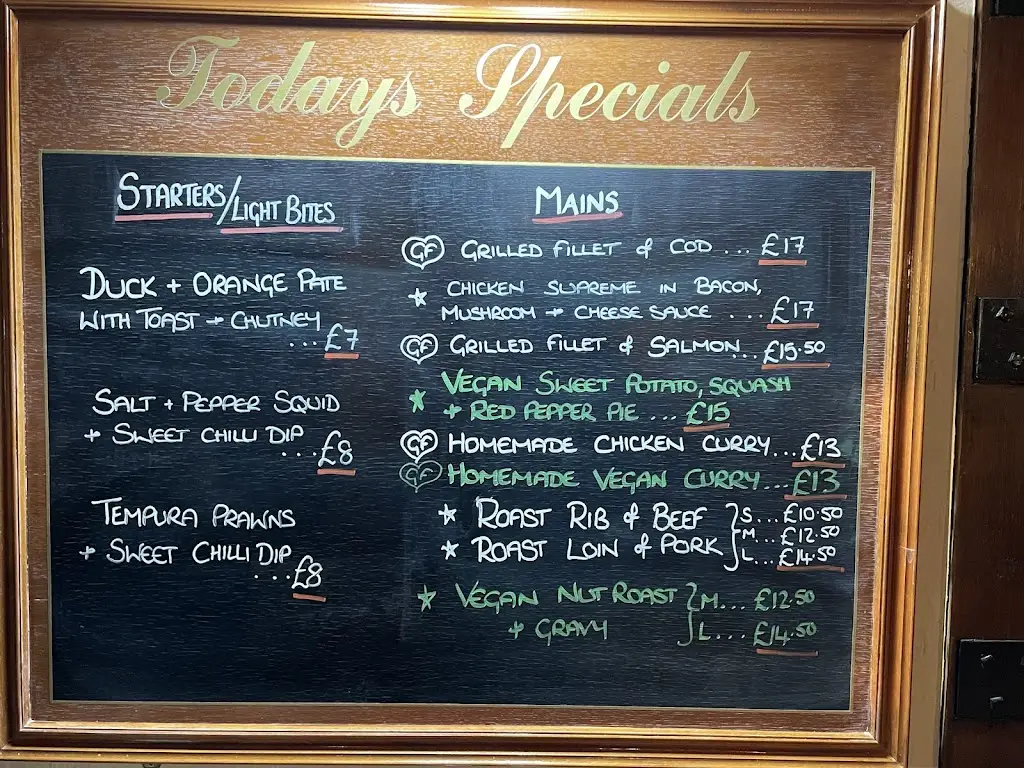 Todays Specials
STARTERS/LIGHT BITES
DUCK + ORANGE PATE
WITH TOAST + CHUTNEY
... £7
SALT + PEPPER SQUID
+ SWEET CHILLI DIP
... £8
TEMPURA PRAWNS
+ SWEET CHILLI DIP
... £8
MAINS
GF GRILLED FILLET of COD ... £17
☆ CHICKEN SUPREME IN BACON,
MUSHROOM + CHEESE SAUCE ... £17
GF GRILLED FILLET of SALMON... £15.50
VEGAN SWEET POTATO, SQUASH
☆ + RED PEPPER PIE ... £15
GF HOMEMADE CHICKEN CURRY...£13
GF HOMEMADE VEGAN CURRY...£13
☆ ROAST RIB of BEEF } S... £10.50
M... £12.50
☆ ROAST LOIN of PORK } L... £14.50
☆ VEGAN NUT ROAST } M... £12.50
+ GRAVY } L... £14.50